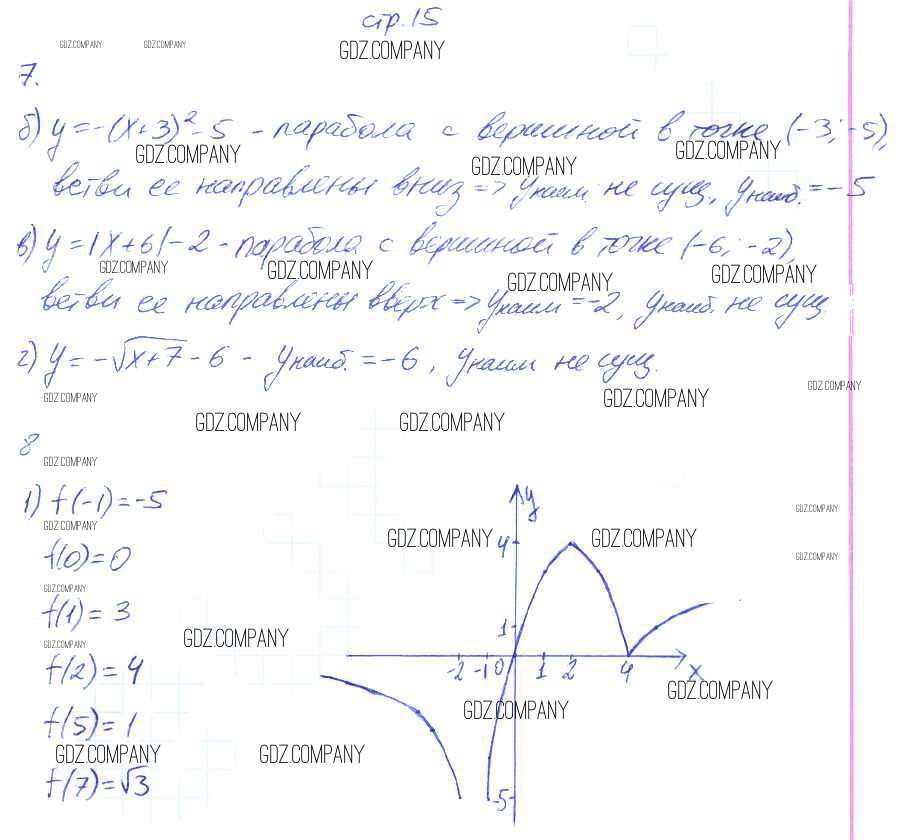 стр. 15
GDZ.COMPANY GDZ.COMPANY GDZ.COMPANY
7.
б) y = -(x+3)² - 5 - парабола с вершиной в точке (-3; -5),
GDZ.COMPANY GDZ.COMPANY GDZ.COMPANY
ветви ее направлены вниз => yнаим. не сущ., yнаиб. = -5
в) y = |x+6| - 2 - парабола с вершиной в точке (-6; -2),
GDZ.COMPANY GDZ.COMPANY GDZ.COMPANY GDZ.COMPANY
ветви ее направлены вверх => yнаим = -2, yнаиб. не сущ.
г) y = -√x+7 - 6 - yнаиб. = -6, yнаим не сущ.
GDZ.COMPANY GDZ.COMPANY GDZ.COMPANY
GDZ.COMPANY GDZ.COMPANY
8
GDZ.COMPANY
1) f(-1) = -5
GDZ.COMPANY
f(0) = 0
GDZ.COMPANY
f(1) = 3
GDZ.COMPANY
GDZ.COMPANY
f(2) = 4
f(5) = 1
GDZ.COMPANY GDZ.COMPANY
f(7) = √3
y
GDZ.COMPANY
GDZ.COMPANY 4 GDZ.COMPANY
GDZ.COMPANY
1
-2 -1 0 1 2 4 x
GDZ.COMPANY
GDZ.COMPANY
-5